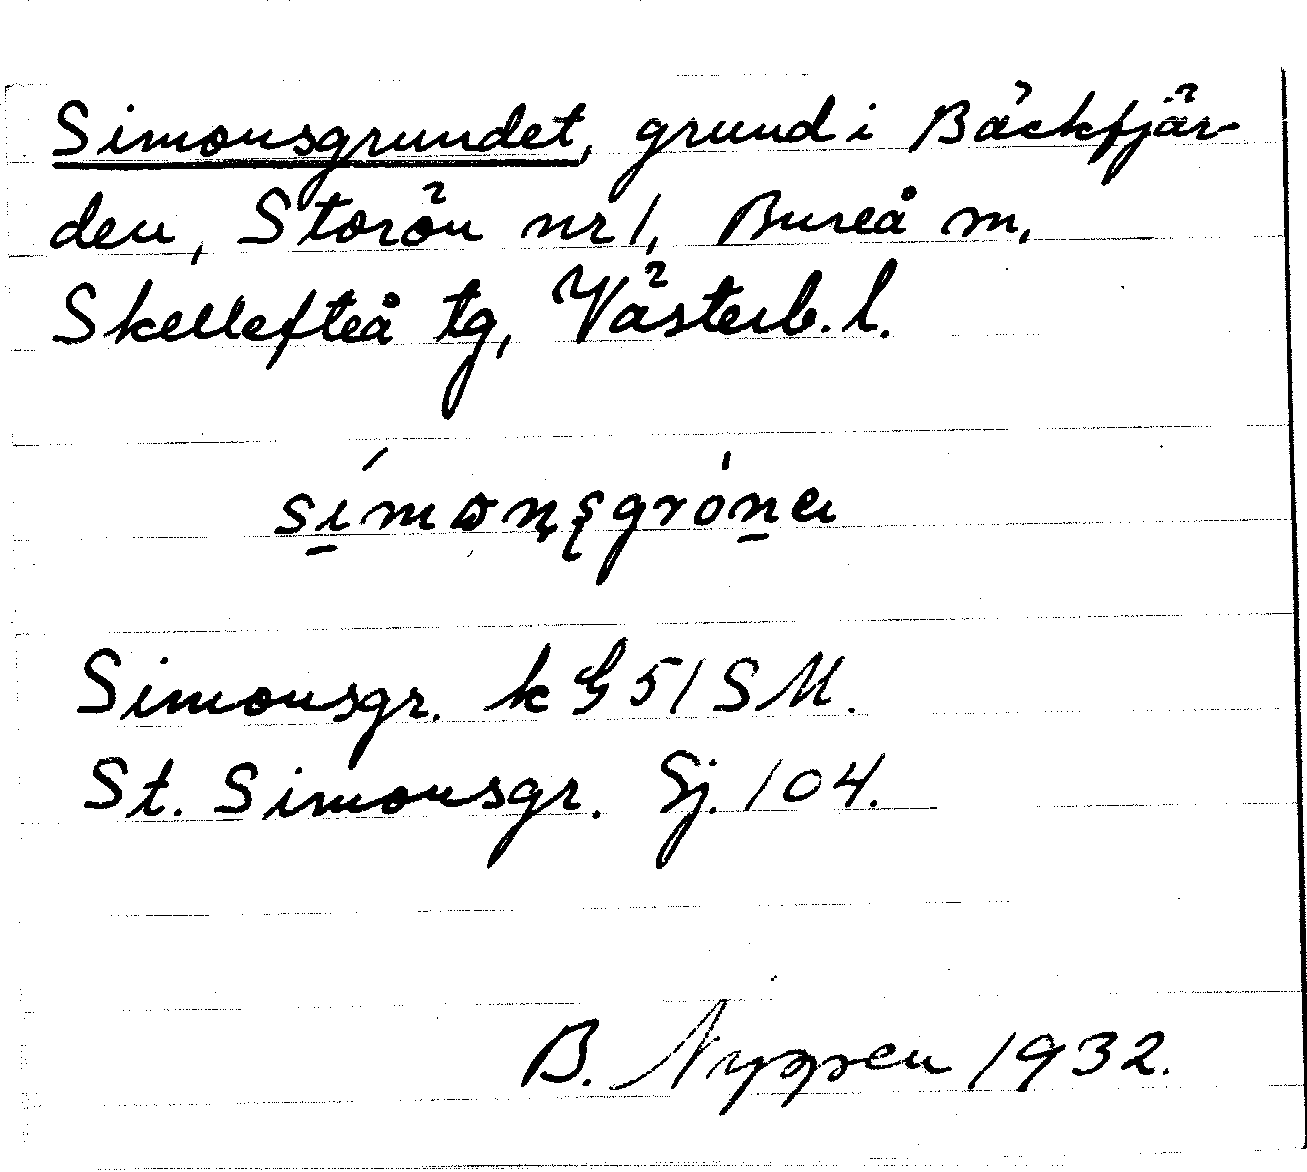 Simonsgrundet, grund i Bäckfjär-
den, Storön nr 1, Bureå m,
Skellefteå tg, Västerb. l.
Simonsgr. k G 51 SM.
St. Simonsgr. Sj. 104.
B. 1932.